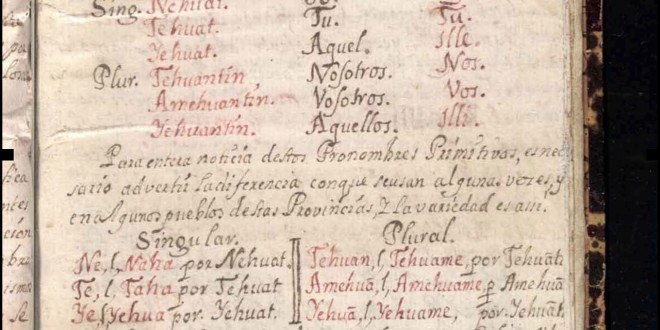 Sing. Nehuat. Yo. Ego.
Tehuat. Tu. Tu.
Yehuat. Aquel. Ille.
Plur. Tehuantin Nosotros. Nos.
Amehuantin. Vosotros. Vos.
Yehuantin. Aquellos. Illi.
Para entera noticia destos Pronombres Primitivos, es nece
sario advertir la diferencia conque se usan algunas vezes, y
en algunos pueblos destas Provincias, y la variedad es assi.
Singular. Plural.
Ne, l, Naha por Nehuat. Tehuan, l, Tehuame, por Tehuātī
Te, l, Taha por Tehuat Amehuā, l, Amehuame, p Amehuā
Ye, l, Yehua por. Yehuat. Yehuā, l, Yehuame, por. Yehuāt.